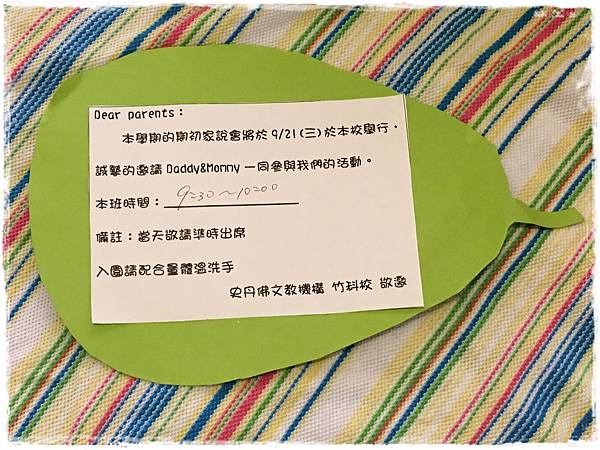 Dear parents：
本學期的期初家說會將於 9/21(三)於本校舉行，
誠摯的邀請 Daddy&Mommy 一同參與我們的活動。
本班時間：9:30～10:00
備註：當天敬請準時出席
入園請配合量體溫洗手
史丹佛文教機構 竹科校 敬邀